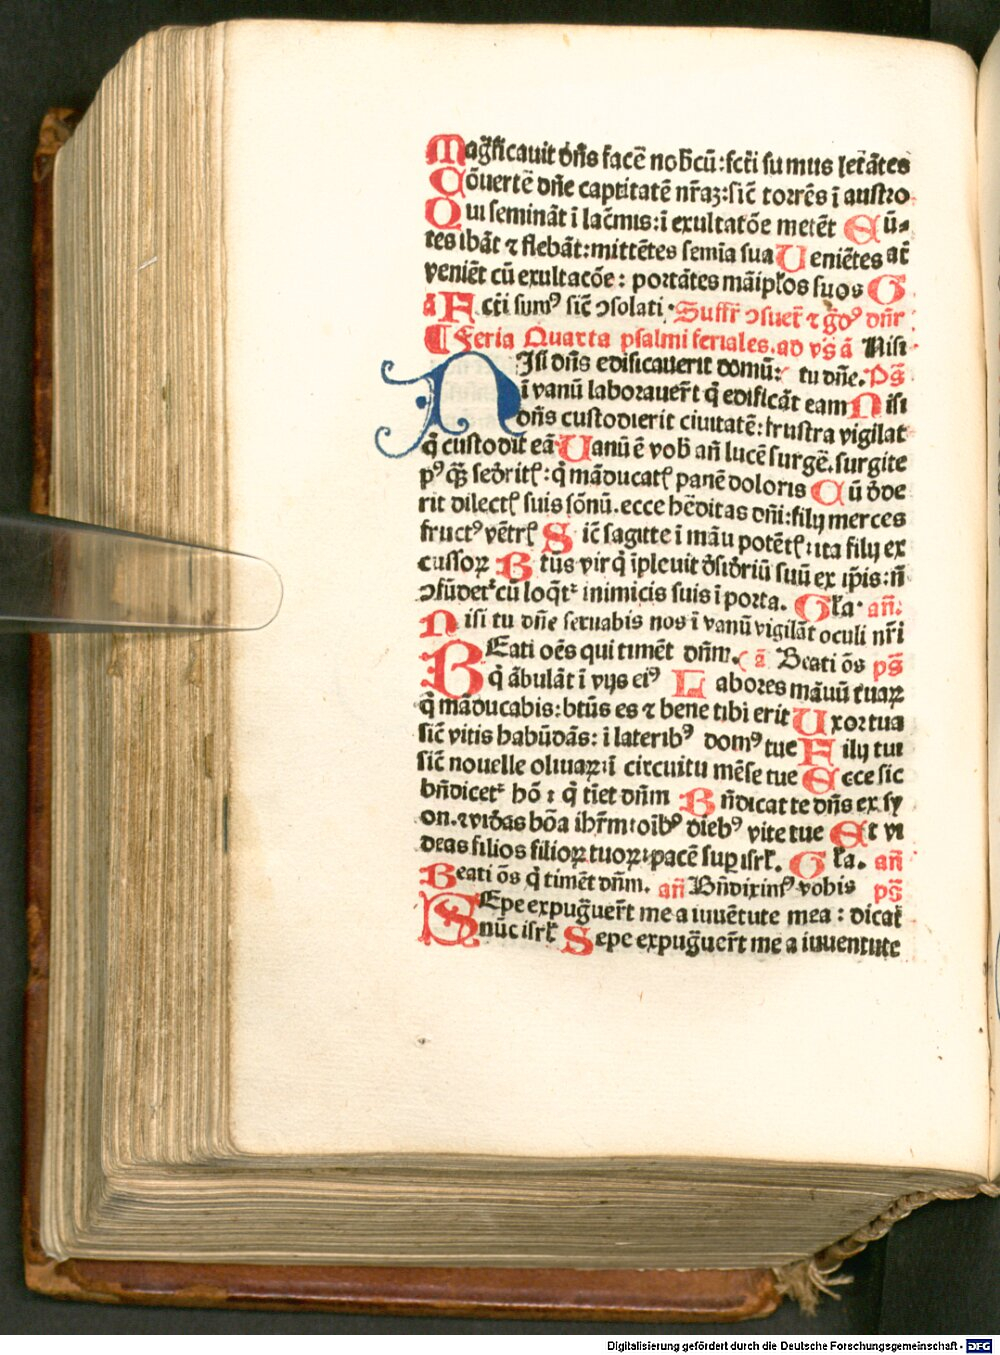 Mag̃ficauit dñs facẽ nobcũ: fct̃i sumus letãtes
Cõuertẽ dñe captitatẽ nr̃aʒ: sic̃ torrẽs ĩ austro
Qui seminãt ĩ lac̃mis: ĩ exultatõe metẽt Eũ-
tes ibãt ⁊ flebãt: mittẽtes semĩa sua Ueniẽtes at̃
veniẽt cũ exultacõe: portãtes mãiplos suos G
a Fct̃i sumꝰ sic̃ ↄsolati. Suffr̃ ↄsuet̃ ⁊ g̃dꝰ dñr
¶ Feria Quarta psalmi feriales. ad vs̃ ã Nisi
NIsi dñs edificauerit domũ: tu dñe. Ps̃
ĩ vanũ laborauer̃t q̃ edificãt eam Nisi
dñs custodierit ciuitatẽ: frustra vigilat
q̃ custodit eã Uanũ ẽ vob̃ añ lucẽ surgẽ. surgite
pꝰ q̃ʒ sed̃ritꝭ: q̃ mãducatꝭ panẽ doloris Cũ d̃de
rit dilectꝭ suis sõnũ. ecce hẽditas dñi: filij merces
fructꝰ vẽtrꝭ Sic̃ sagitte ĩ mãu potẽtꝭ: ita filij ex
cussoꝝ Btũs vir q̃ ĩpleuit d̃sid̃riũ suũ ex ip̃is: ñ
ↄfũdet᷑ cũ loq̃t᷑ inimicis suis ĩ porta. Gla. añ.
Nisi tu dñe seruabis nos ĩ vanũ vigilãt oculi nr̃i
BEati oẽs qui timẽt dñm. ã Beati õs ps̃
q̃ ãbulãt ĩ vijs eiꝰ Labores mãuũ tuaꝝ
q̃ mãducabis: btũs es ⁊ bene tibi erit Uxor tua
sic̃ vitis habũdãs: ĩ lateribꝰ domꝰ tue Filij tui
sic̃ nouelle oliuaꝝ: ĩ circuitu mẽse tue Ecce sic
bñdicet᷑ hõ: q̃ tiẽt dñm Bñdicat te dñs ex sy
on. ⁊ vid̃as bõa ihr̃m: oĩbꝰ diebꝰ vite tue Et vi
deas filios filioꝝ tuoꝝ: pacẽ suꝑ isrl̃. Gla. añ
Beati õs q̃ timẽt dñm. añ Bñdiximꝰ vobis ps̃
SEpe expug̃uer̃t me a iuuẽtute mea: dicat̃
nũc isrl̃ Sepe expug̃uer̃t me a iuuentute
Digitalisierung gefördert durch die Deutsche Forschungsgemeinschaft - DFG